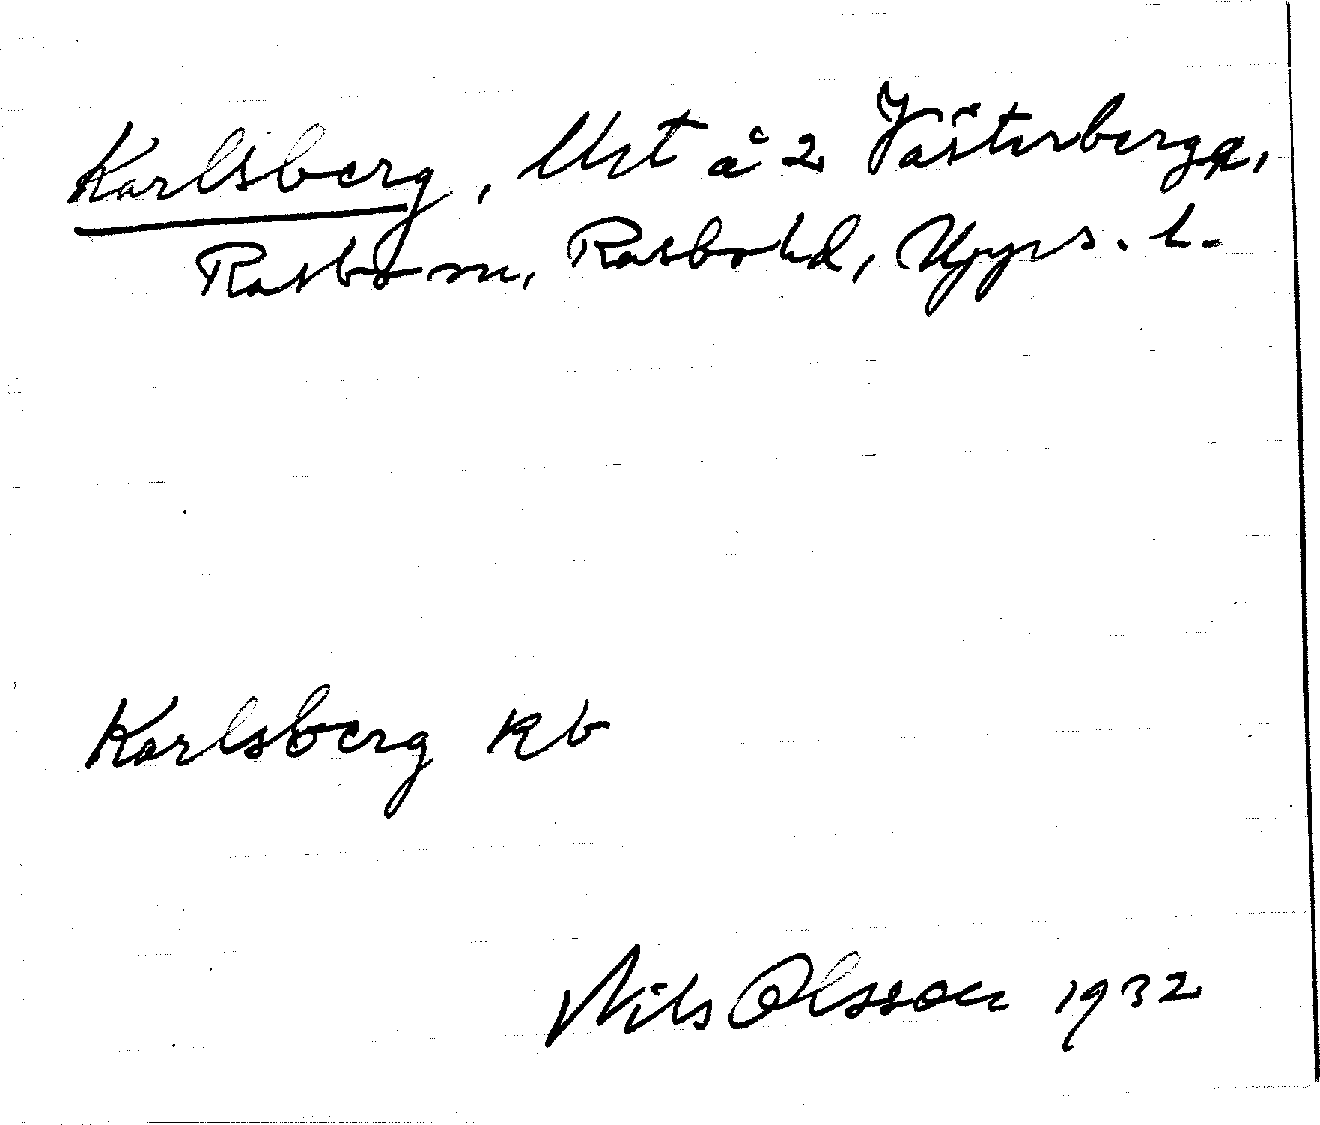 Karlsberg, lht å 2 Västerberga,
Rasbo sn, Rasbo hd, Upps. l.
Karlsberg Kb
Nils Olsson 1932